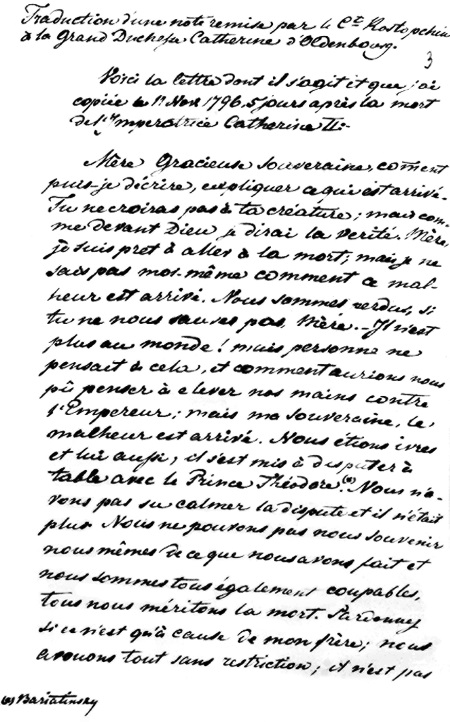 Traduction d'une note remise par le Cte Rostopchin
à la Grand Duchesse Catherine d'Oldenbourg.
3
Voici la lettre dont il s'agit et que j'ai
copiée le 11 Nov. 1796, 5 jours après la mort
de l'Impératrice Catherine II:-
Mère Gracieuse Souveraine, coment
puis-je décrire, expliquer ce qui est arrivé.
Tu ne croiras pas à ta créature; mais com-
me devant Dieu je dirai la verité. Mère,
je suis pret à aller à la mort; mais je ne
sais pas moi-même comment ce mal-
heur est arrivé. Nous sommes perdus, si
tu ne nous sauves pas. Mère. - Il n'est
plus au monde! mais personne ne
pensait à cela, et comment aurions nous
pû penser à elever nos mains contre
l'Empereur; mais ma Souveraine, le
malheur est arrivé. Nous étions ivres
et lui aussi; il s'est mis à disputer à
table avec le Prince Théodore.(a) Nous n'a-
vons pas su calmer la dispute et il n'était
plus. Nous ne pouvons pas nous souvenir
nous mêmes de ce que nous avons fait et
nous sommes tous également coupables,
tous nous méritons la mort. Pardonnez
si ce n'est qu'à cause de mon frère; nous
avouons tout sans restriction; il n'est pas
(a) Bariatinsky